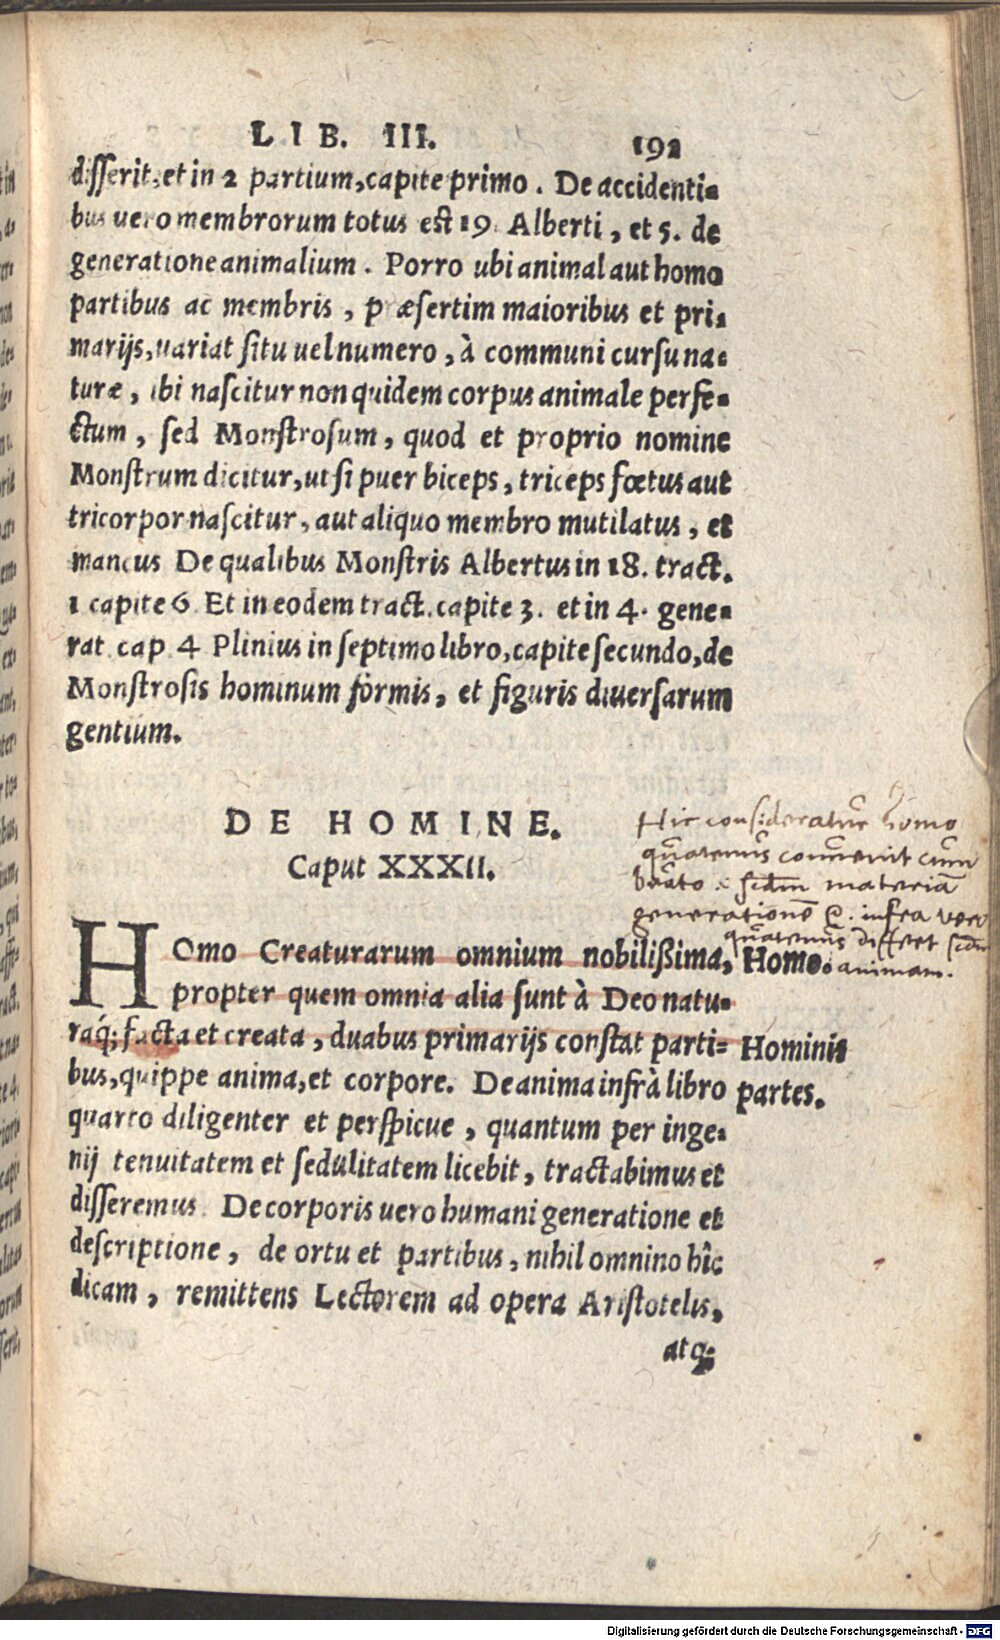 LIB. III. 192
disserit, et in 2 partium, capite primo. De accidenti-
bus uero membrorum totus est 19. Alberti, et 5. de
generatione animalium. Porro ubi animal aut homo
partibus ac membris, præsertim maioribus et pri-
marijs, uariat situ uel numero, à communi cursu na-
turæ, ibi nascitur non quidem corpus animale perfe-
ctum, sed Monstrosum, quod et proprio nomine
Monstrum dicitur, ut si puer biceps, triceps fœtus aut
tricorpor nascitur, aut aliquo membro mutilatus, et
mancus De qualibus Monstris Albertus in 18. tract.
1 capite 6 Et in eodem tract. capite 3. et in 4. gene-
rat cap 4 Plinius in septimo libro, capite secundo, de
Monstrosis hominum formis, et figuris diuersarum
gentium.
DE HOMINE.
Caput XXXII.
Hic consideratur homo
quatenus convenit cum
bruto secundum materiā
generationē infra vero
quatenus differt scdm
animam.
HOmo Creaturarum omnium nobilißima,
Homo.
propter quem omnia alia sunt à Deo natu-
raq́; facta et creata, duabus primarijs constat parti-
Hominis
bus, quippe anima, et corpore. De anima infrà libro
partes.
quarto diligenter et perspicue, quantum per inge-
nij tenuitatem et sedulitatem licebit, tractabimus et
disseremus. De corporis uero humani generatione et
descriptione, de ortu et partibus, nihil omnino hîc
dicam, remittens Lectorem ad opera Aristotelis,
atq;
Digitalisierung gefördert durch die Deutsche Forschungsgemeinschaft - DFG